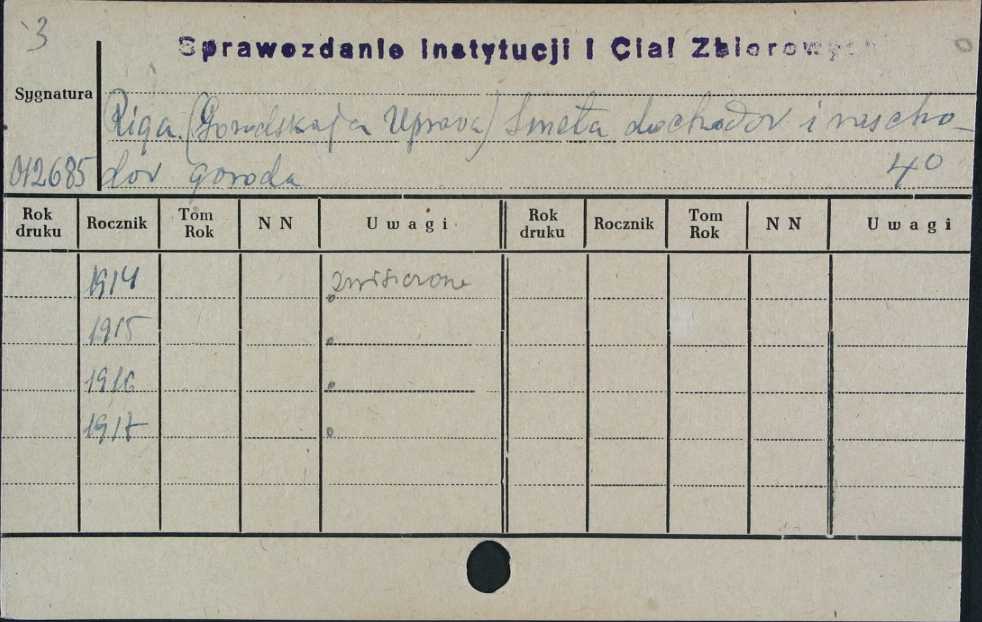 3
Sprawozdanie Instytucji i Ciał Zbiorowych
Sygnatura
Riga. (Gorodskaja Uprava) Smeta dochodov i rascho-
012685 dov goroda 4°
Rok druku Rocznik Tom Rok N N Uwagi Rok druku Rocznik Tom Rok N N Uwagi
1914
1915
1916
1917